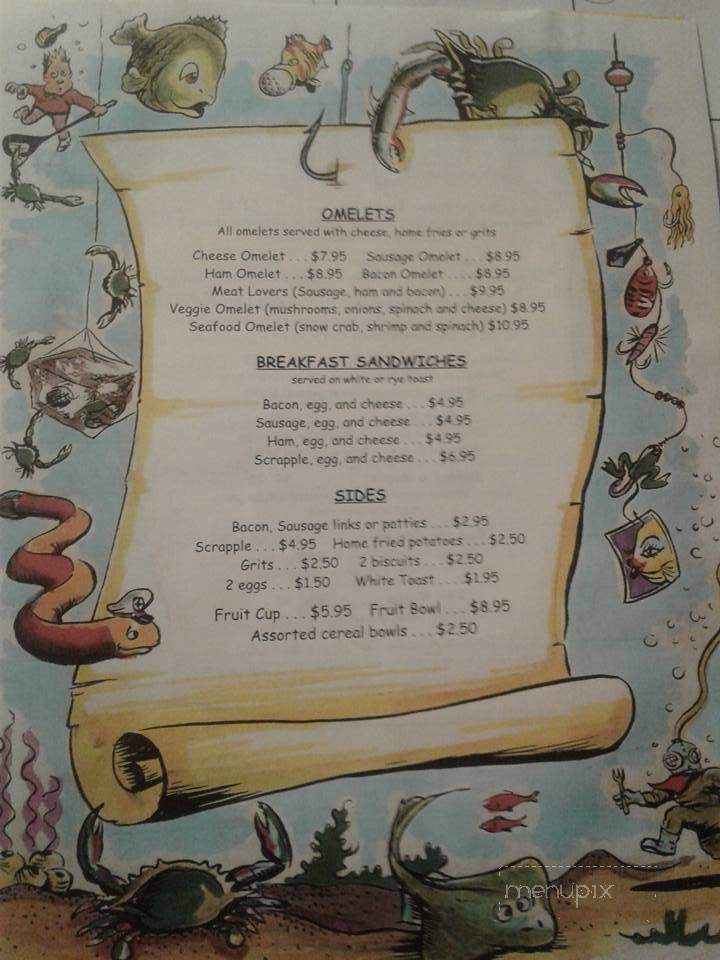 OMELETS
All omelets served with cheese, home fries or grits
Cheese Omelet . . . $7.95 Sausage Omelet . . . $8.95
Ham Omelet . . . $8.95 Bacon Omelet . . . . $8.95
Meat Lovers (Sausage, ham and bacon) . . . $9.95
Veggie Omelet (mushrooms, onions, spinach and cheese) $8.95
Seafood Omelet (snow crab, shrimp and spinach) $10.95
BREAKFAST SANDWICHES
served on white or rye toast
Bacon, egg, and cheese . . . $4.95
Sausage, egg, and cheese . . . $4.95
Ham, egg, and cheese . . . $4.95
Scrapple, egg, and cheese . . . $6.95
SIDES
Bacon, Sausage links or patties . . . $2.95
Scrapple . . . $4.95 Home fried potatoes . . . $2.50
Grits . . . $2.50 2 biscuits . . . $2.50
2 eggs . . . $1.50 White Toast . . . $1.95
Fruit Cup . . . $5.95 Fruit Bowl . . . $8.95
Assorted cereal bowls . . . $2.50
menupix